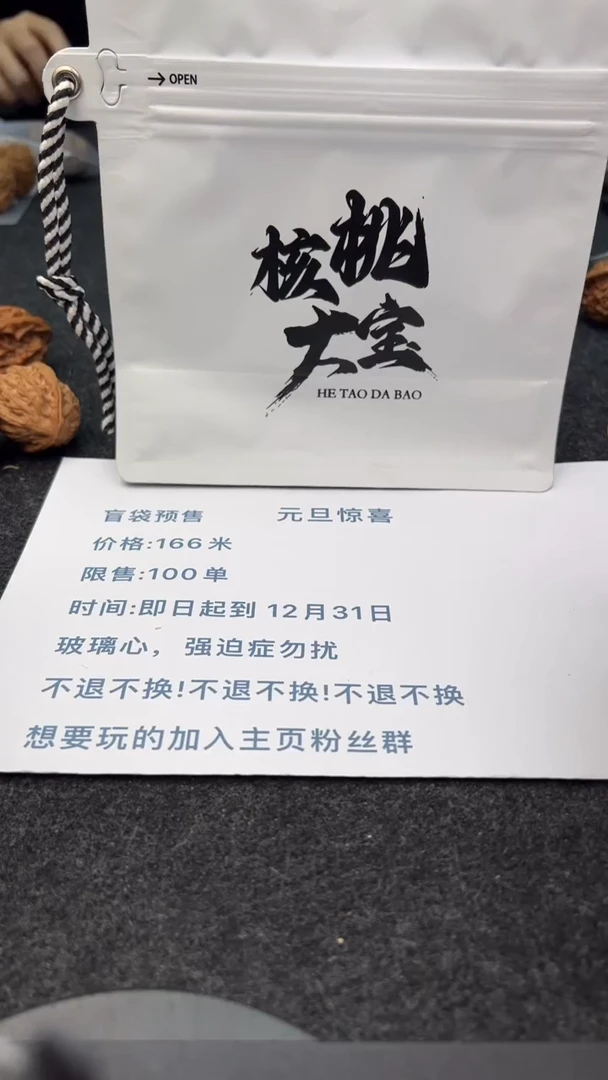 → OPEN
核桃
大宝
HE TAO DA BAO
盲袋预售 元旦惊喜
价格:166米
限售:100单
时间:即日起到 12月31日
玻璃心，强迫症勿扰
不退不换!不退不换!不退不换
想要玩的加入主页粉丝群